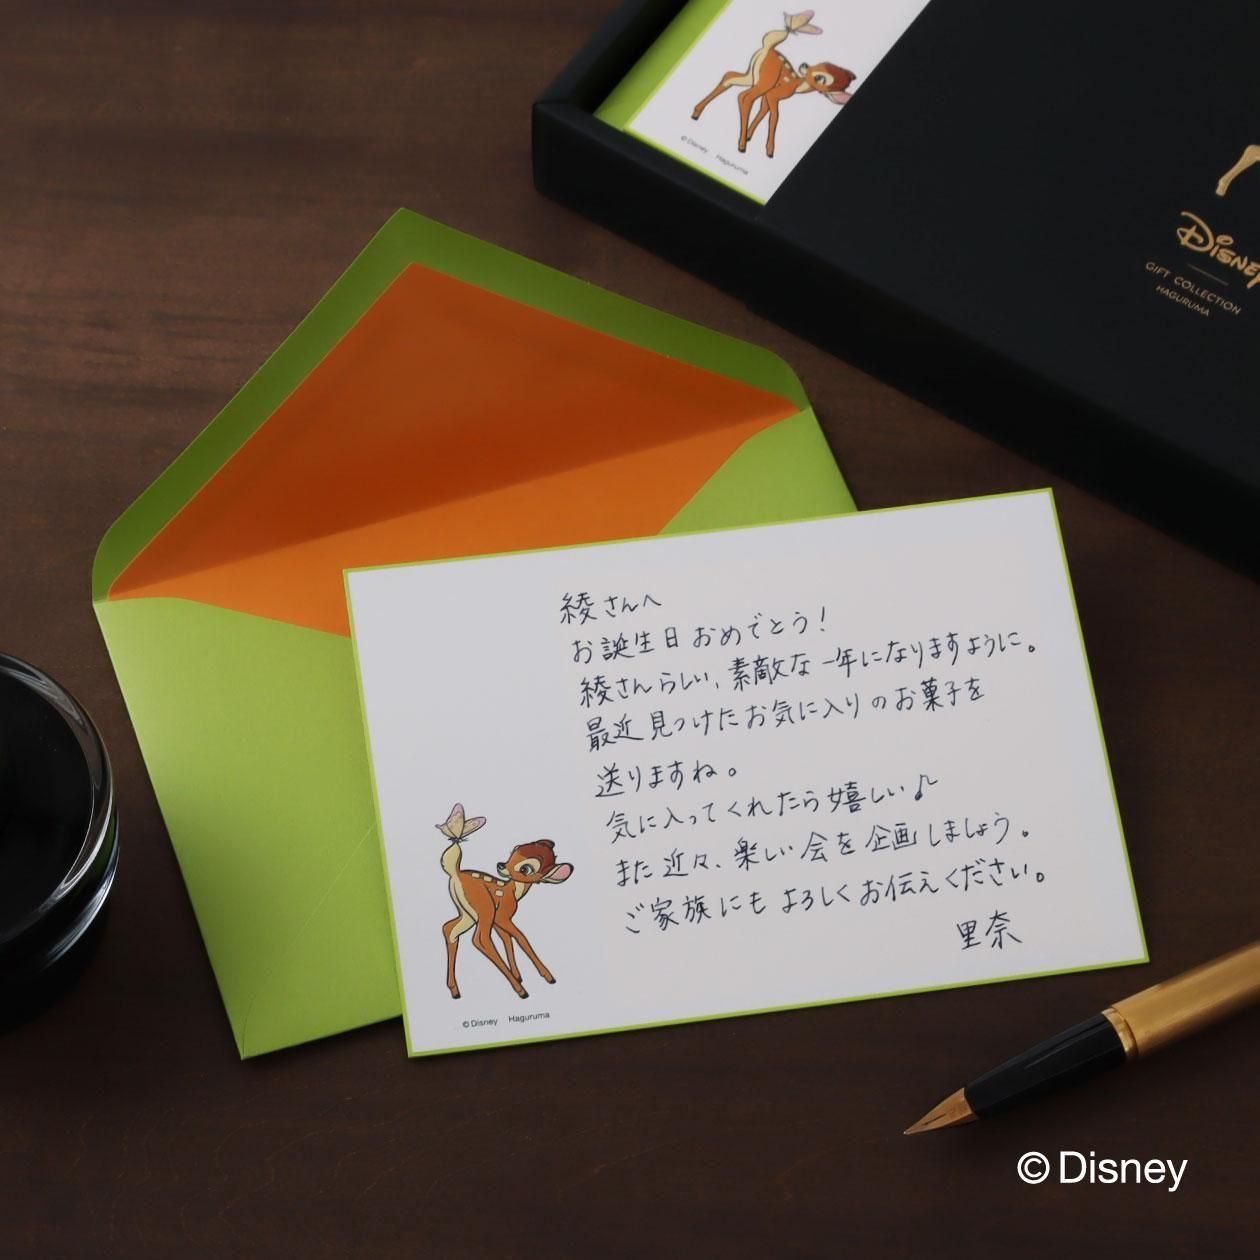 ©Disney Haguruma
Disney
GIFT COLLECTION
HAGURUMA
綾さんへ
お誕生日おめでとう!
綾さんらしい、素敵な一年になりますように。
最近見つけたお気に入りのお菓子を
送りますね。
気に入ってくれたら嬉しい♪
また近々、楽しい会を企画しましょう。
ご家族にもよろしくお伝えください。
里奈
©Disney Haguruma
©Disney